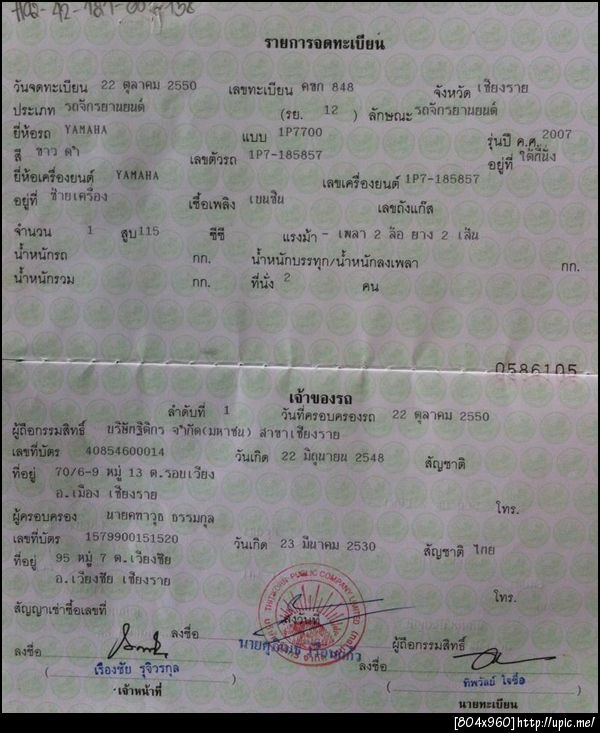 รายการจดทะเบียน
วันจดทะเบียน 22 ตุลาคม 2550 เลขทะเบียน คขก 848 จังหวัด เชียงราย
ประเภท รถจักรยานยนต์ (รย. 12 ) ลักษณะ รถจักรยานยนต์
ยี่ห้อรถ YAMAHA แบบ 1P7700 รุ่นปี ค.ศ. 2007
สี ขาว ดำ เลขตัวรถ 1P7-185857 อยู่ที่ ใต้ที่นั่ง
ยี่ห้อเครื่องยนต์ YAMAHA เลขเครื่องยนต์ 1P7-185857
อยู่ที่ ซ้ายเครื่อง เชื้อเพลิง เบนซิน เลขถังแก๊ส
จำนวน 1 สูบ 115 ซีซี แรงม้า - เพลา 2 ล้อ ยาง 2 เส้น
น้ำหนักรถ กก. น้ำหนักบรรทุก/น้ำหนักลงเพลา กก.
น้ำหนักรวม กก. ที่นั่ง 2 คน
0586105
เจ้าของรถ
ลำดับที่ 1 วันที่ครอบครองรถ 22 ตุลาคม 2550
ผู้ถือกรรมสิทธิ์ บริษัทฐิติกร จำกัด(มหาชน) สาขาเชียงราย
เลขที่บัตร 40854600014 วันเกิด 22 มิถุนายน 2548 สัญชาติ
ที่อยู่ 70/6-9 หมู่ 13 ต.รอบเวียง
อ.เมือง เชียงราย
โทร.
ผู้ครอบครอง นายคฑาวุธ ธรรมกุล
เลขที่บัตร 1579900151520 วันเกิด 23 มีนาคม 2530 สัญชาติ ไทย
ที่อยู่ 95 หมู่ 7 ต.เวียงชัย
อ.เวียงชัย เชียงราย
โทร.
สัญญาเช่าซื้อเลขที่ ลงวันที่
THITIKORN PUBLIC COMPANY LIMITED
ลงชื่อ ลงชื่อ ผู้ถือกรรมสิทธิ์
( เรืองชัย รุจิวรกุล ) ลงชื่อ
เจ้าหน้าที่ ( ทิพวัลย์ ใจซื่อ )
นายทะเบียน
[804x960]http://upic.me/